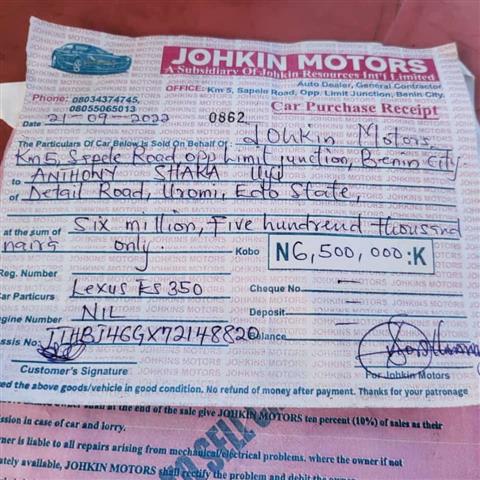 JOHKIN MOTORS
A Subsidiary Of Johkin Resources Int'l Limited
Auto Dealer, General Contractor
OFFICE: Km 5, Sapele Road, Opp. Limit Junction, Benin City.
Phone: 08034374745,
08055065013
Car Purchase Receipt
Date 21-09-2022 0862
The Particulars Of Car Below Is Sold On Behalf Of: Johkin Motors,
Km5, Sapele Road, opp Limit junction, Benin City.
to ANTHONY SHAKA
of Detail Road, Uromi, Edo State,
at the sum of Six million, Five hundrend thousand
naira only. Kobo N6,500,000:K
Reg. Number Cheque No.
Car Particurs Lexus Es 350 Deposit
Engine Number NIL Balance
assis No: JTHBJ46GX72148820
Customer's Signature For Johkin Motors
ed the above goods/vehicle in good condition. No refund of money after payment. Thanks for your patronage
at the end of the sale give JOHKIN MOTORS ten percent (10%) of sales as their
ission in case of car and lorry.
ner is liable to all repairs arising from mechanical/electrical problems, where the owner if not
ately available, JOHKIN MOTORS shall rectify the problem and debit the owner